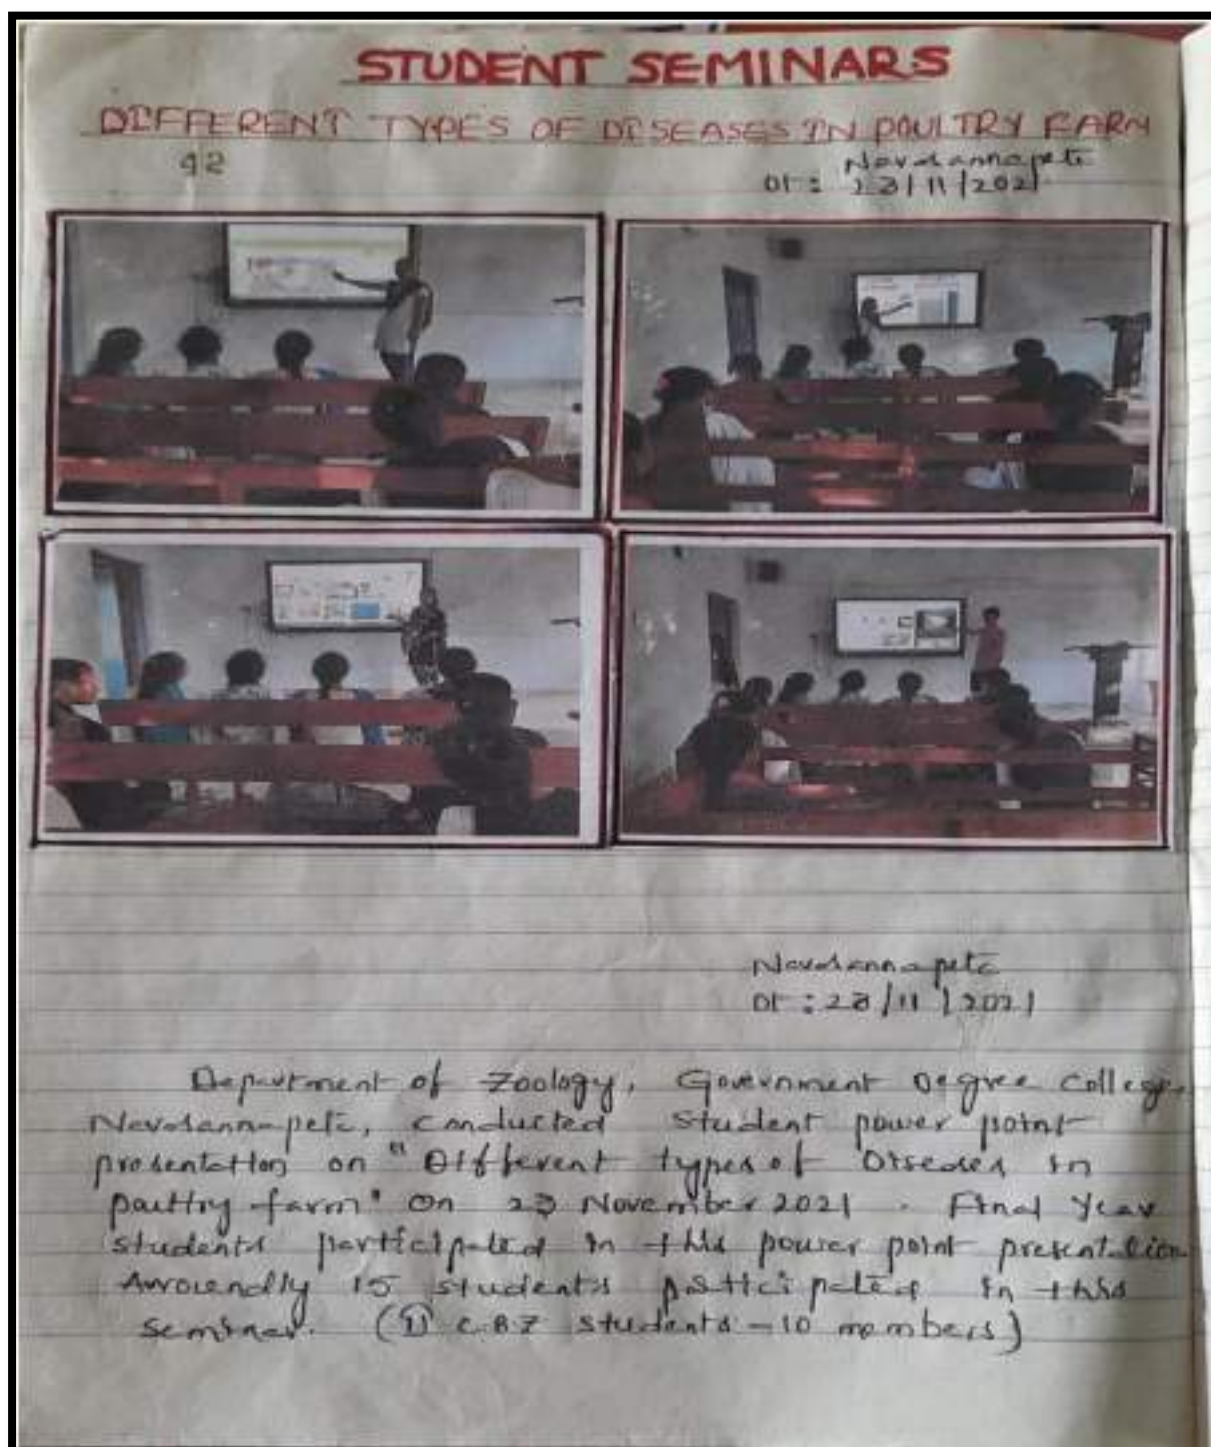 STUDENT SEMINARS
DIFFERENT TYPES OF DISEASES IN POULTRY FARM
92
Narsannapeta
Dt: 23/11/2021
Narsannapeta
Dt: 23/11/2021
Department of Zoology, Government Degree College,
Narsannapeta, conducted student power point
presentation on "Different types of Diseases in
poultry farm" on 23 November 2021. Final Year
students participated in this power point presentation
students participated in this
seminar. (C.B.Z students - 10 members)